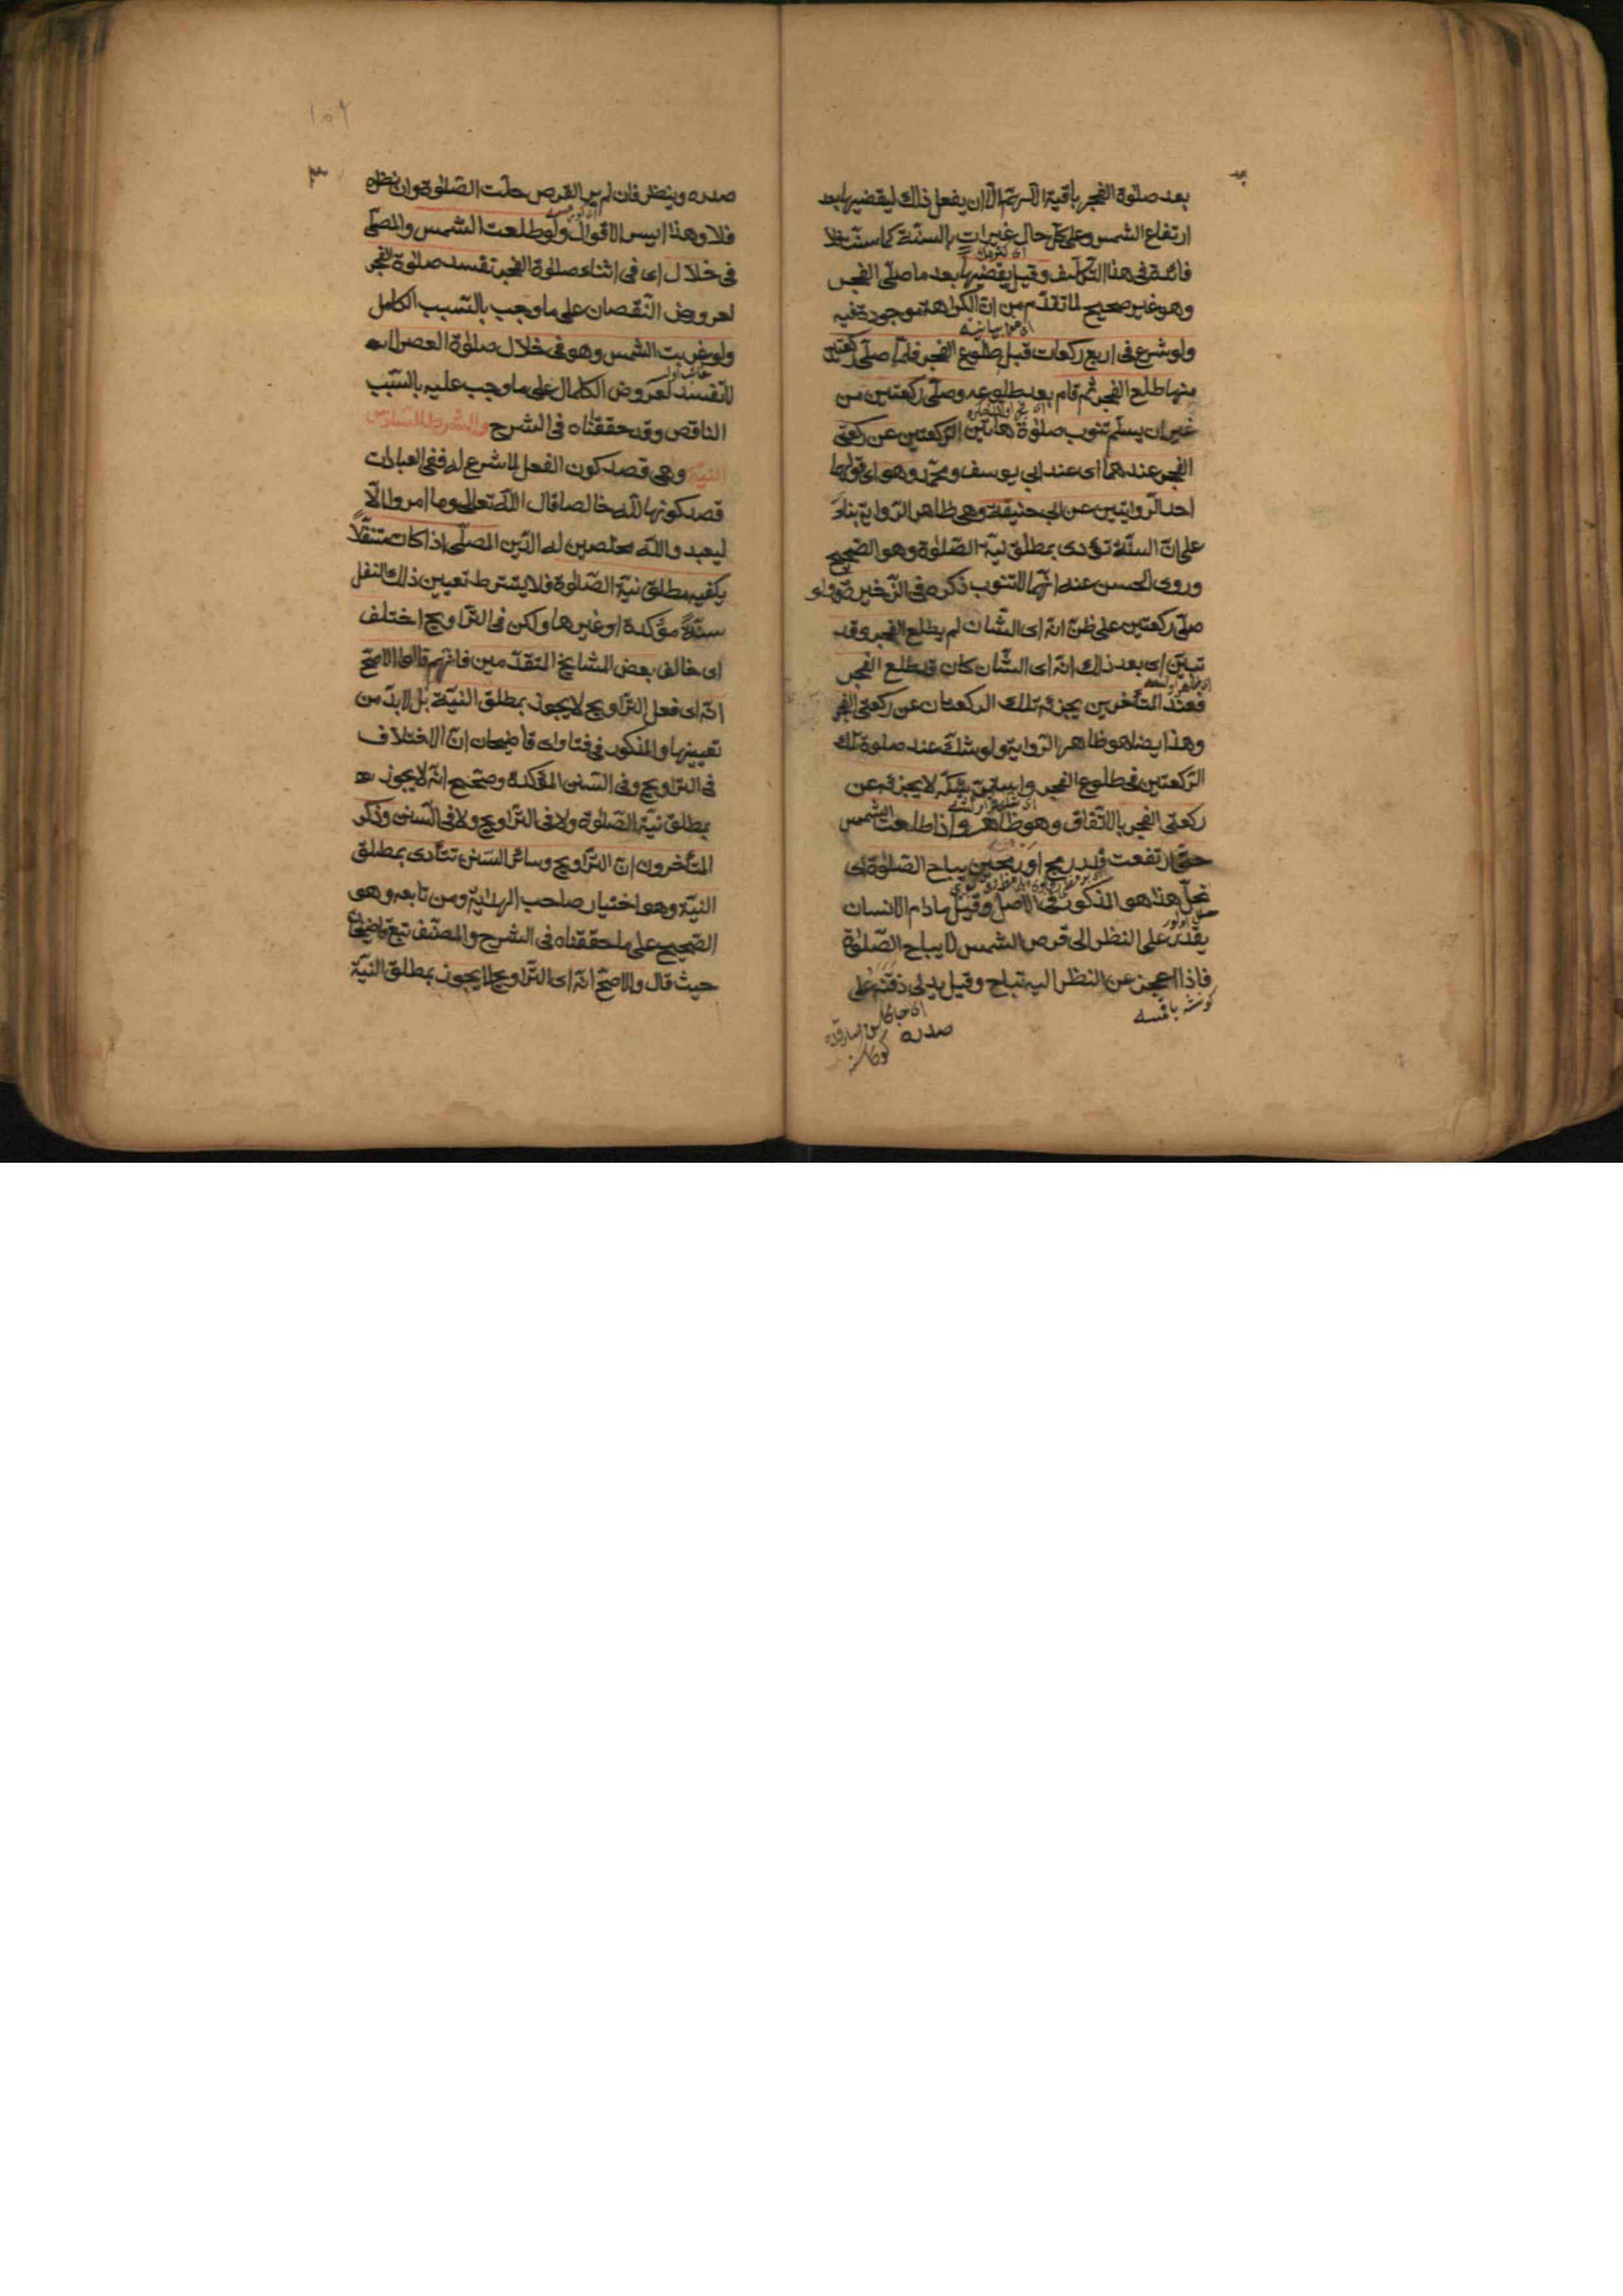 بعد صلوة الفجر باقية الا يفعل ذلك ليقضيها بعد
ارتفاع الشمس وعلى كل حال غير ات بالسنة كما سنت فلا
فائدة فى هذا التكليف وقيل يقضيها بعد ما صلى الفجر
وهو غير صحيح لما تقدم من ان الكراهة موجودة فيه
ولو شرع فى اربع ركعات قبل طلوع الفجر فلما صلى ركعتين
منها طلع الفجر ثم قام بعد طلوعه وصلى ركعتين من
غير ان يسلم تنوب صلوة هاتين الركعتين عن ركعتى
الفجر عندهما اى عند ابى يوسف ومحمد وهو اى قولهما
احد الروايتين عن ابى حنيفة وهى ظاهر الرواية بناء
على ان السنة تؤدى بمطلق نية الصلوة وهو الصحيح
وروى الحسن عنه انها لا تنوب ذكره فى الذخيرة ولو
صلى ركعتين على ظن انه اى الشان لم يطلع الفجر وقد
تبين اى بعد ذلك انه اى الشان كان قد طلع الفجر
فعند المتأخرين يجزئه تلك الركعتان عن ركعتى الفجر
وهذا ايضا هو ظاهر الرواية ولو شك عند صلوة تلك
الركعتين فى طلوع الفجر واستمر شكه لا يجزئه عن
ركعتى الفجر بالاتفاق وهو ظاهر واذا طلعت الشمس
حتى ارتفعت قدر رمح او رمحين يباح الصلوة اى
تحل هذا هو المذكور فى الاصل وقيل مادام الانسان
يقدر على النظر الى قرص الشمس لا يباح الصلوة
فاذا عجز عن النظر اليه تباح وقيل يدلى ذقنه على
صدره
١٠٩
صدره وينظر فان لم ير القرص حلت الصلوة وان نظره
فلا وهذا ايسر الاقوال ولو طلعت الشمس والمصلى
فى خلال اى فى اثناء صلوة الفجر تفسد صلوة الفجر
لعروض النقصان على ما وجب بالسبب الكامل
ولو غربت الشمس وهو فى خلال صلوة العصر
لا تفسد لعروض الكمال على ما وجب عليه بالسبب
الناقص وقد حققناه فى الشرح والشرط السادس
النية وهى قصد كون الفعل لما شرع له ففى العبادات
قصد كونها لله خالصا قال الله تعالى وما امروا الا
ليعبدوا الله مخلصين له الدين المصلى اذا كان متنفلا
يكفيه مطلق نية الصلوة فلا يشترط تعيين ذلك النفل
سنة مؤكدة او غيرها ولكن فى التراويح اختلف
اى خالف بعض المشايخ المتقدمين فانهم قالوا الاصح
انه اى فعل التراويح لا يجوز بمطلق النية بل لا بد من
تعيينها والمذكور فى فتاوى قاضيخان ان الاختلاف
فى التراويح وفى السنن المؤكدة وصحح انه لا يجوز
بمطلق نية الصلوة ولا فى التراويح ولا فى السنن وذكر
المتأخرون ان التراويح وسائر السنن تتأدى بمطلق
النية وهو اختيار صاحب الهداية ومن تابعه وهو
الصحيح على ما حققناه فى الشرح والمصنف تبع قاضيخان
حيث قال والاصح انه اى التراويح لا يجوز بمطلق النية